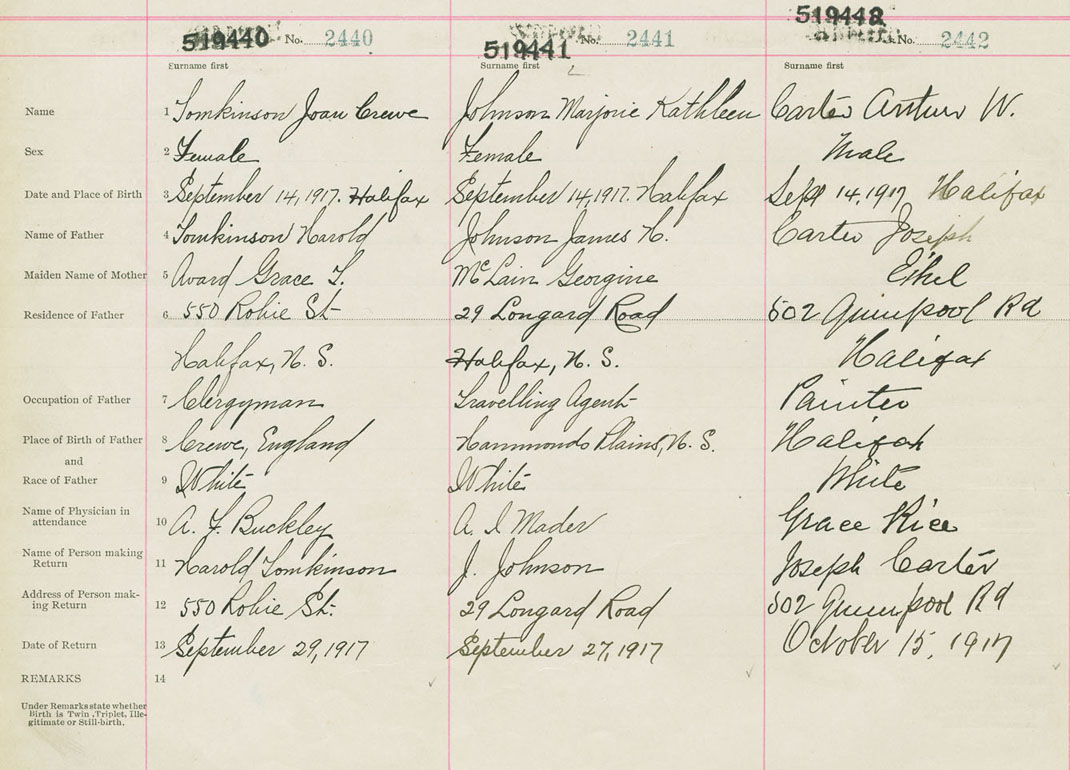 519440 No. 2440
519441 No. 2441
519442 No. 2442
Surname first Surname first Surname first
Name 1 Tomkinson Joan Crewe Johnson Marjorie Kathleen Carter Arthur W.
Sex 2 Female Female Male
Date and Place of Birth 3 September 14, 1917. Halifax September 14, 1917. Halifax Sept 14, 1917 Halifax
Name of Father 4 Tomkinson Harold Johnson James H. Carter Joseph
Maiden Name of Mother 5 Avard Grace T. McLain Georgine Ethel
Residence of Father 6 550 Robie St 29 Longard Road 502 Quinpool Rd
Halifax, N. S. Halifax, N. S. Halifax
Occupation of Father 7 Clergyman Travelling Agent Painter
Place of Birth of Father 8 Crewe, England Hammonds Plains, N. S. Halifax
and
Race of Father 9 White White White
Name of Physician in
attendance 10 A. F. Buckley A. I Mader Grace Rice
Name of Person making
Return 11 Harold Tomkinson J. Johnson Joseph Carter
Address of Person mak-
ing Return 12 550 Robie St. 29 Longard Road 502 Quinpool Rd
Date of Return 13 September 29, 1917 September 27, 1917 October 15, 1917
REMARKS 14
Under Remarks state whether
Birth is Twin, Triplet, Ille-
gitimate or Still-birth.